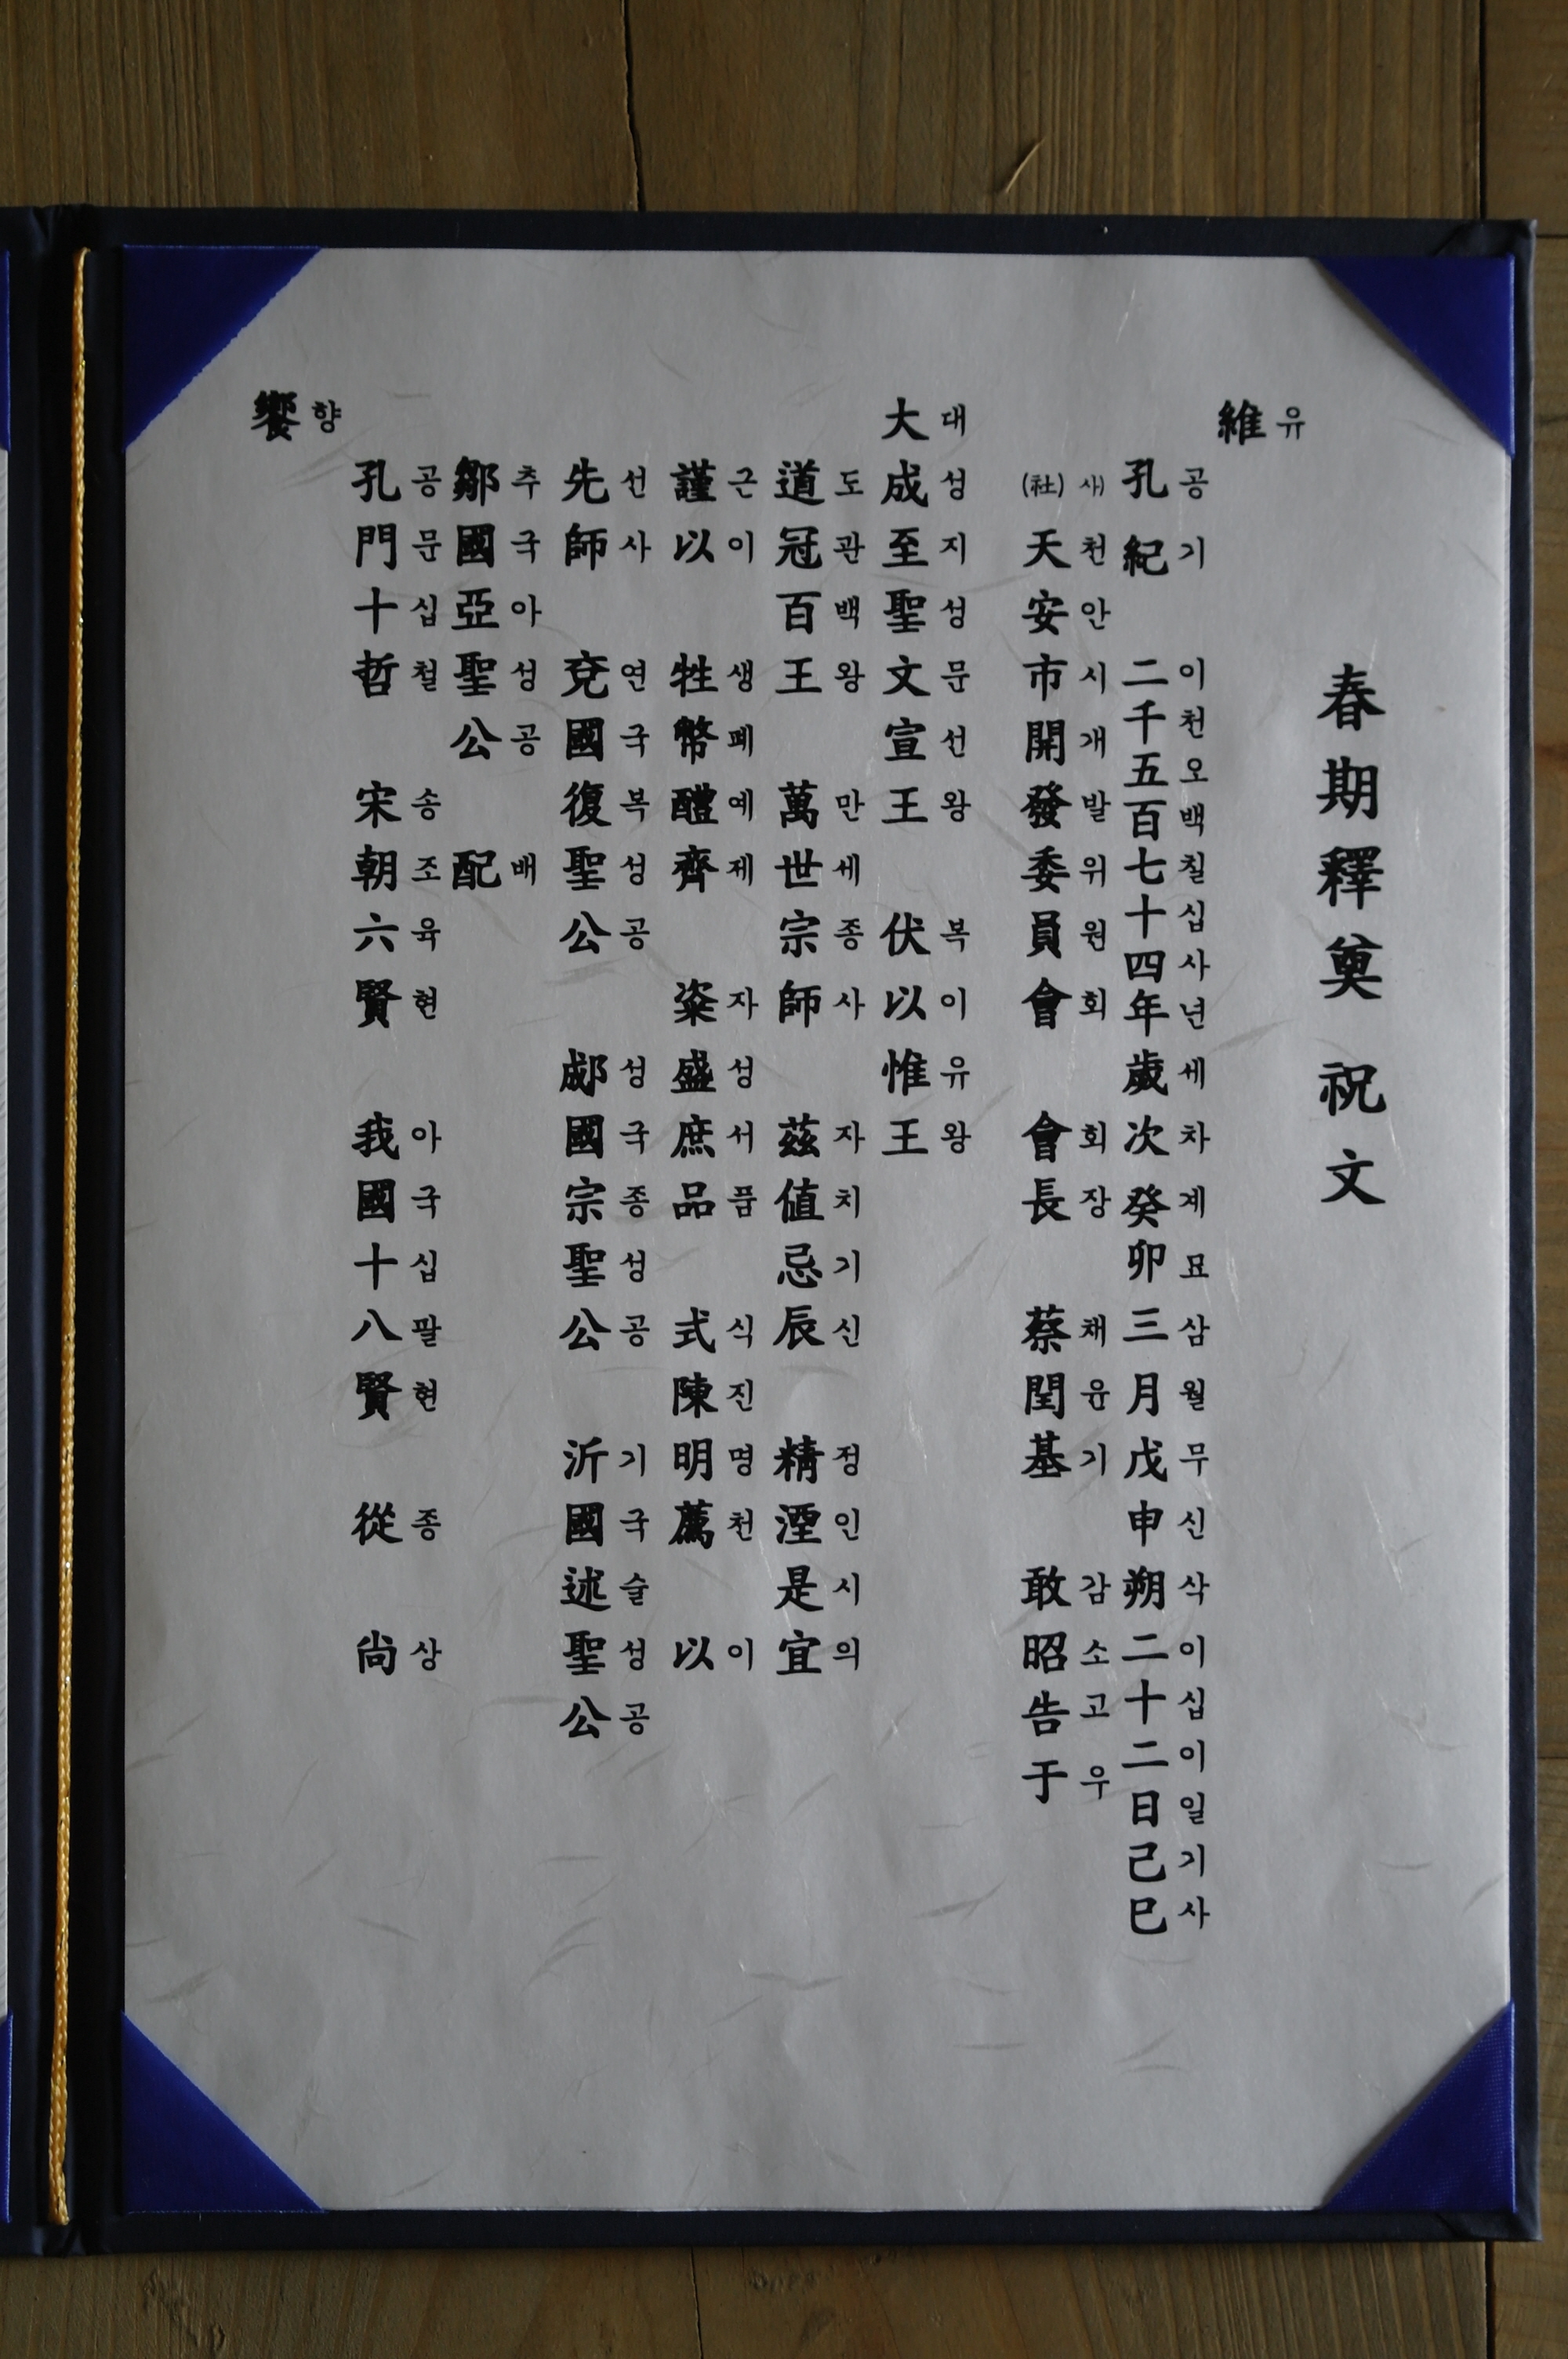 春期釋奠 祝文
維
유
孔紀 二千五百七十四年 歲次癸卯三月戊申朔二十二日己巳
공기 이천오백칠십사년 세차계묘삼월무신삭이십이일기사
(社)天安市開發委員會 會長 蔡閏基 敢昭告于
사)천안시개발위원회 회장 채윤기 감소고우
大成至聖文宣王 伏以惟王
대성지성문선왕 복이유왕
道冠百王 萬世宗師 茲值忌辰 精湮是宜
도관백왕 만세종사 자치기신 정인시의
謹以 牲幣醴齊 粢盛庶品 式陳明薦 以
근이 생폐예제 자성서품 식진명천 이
先師 兗國復聖公 郕國宗聖公 沂國述聖公
선사 연국복성공 성국종성공 기국술성공
鄒國亞聖公 配
추국아성공 배
孔門十哲 宋朝六賢 我國十八賢 從 尙
공문십철 송조육현 아국십팔현 종 상
饗
향